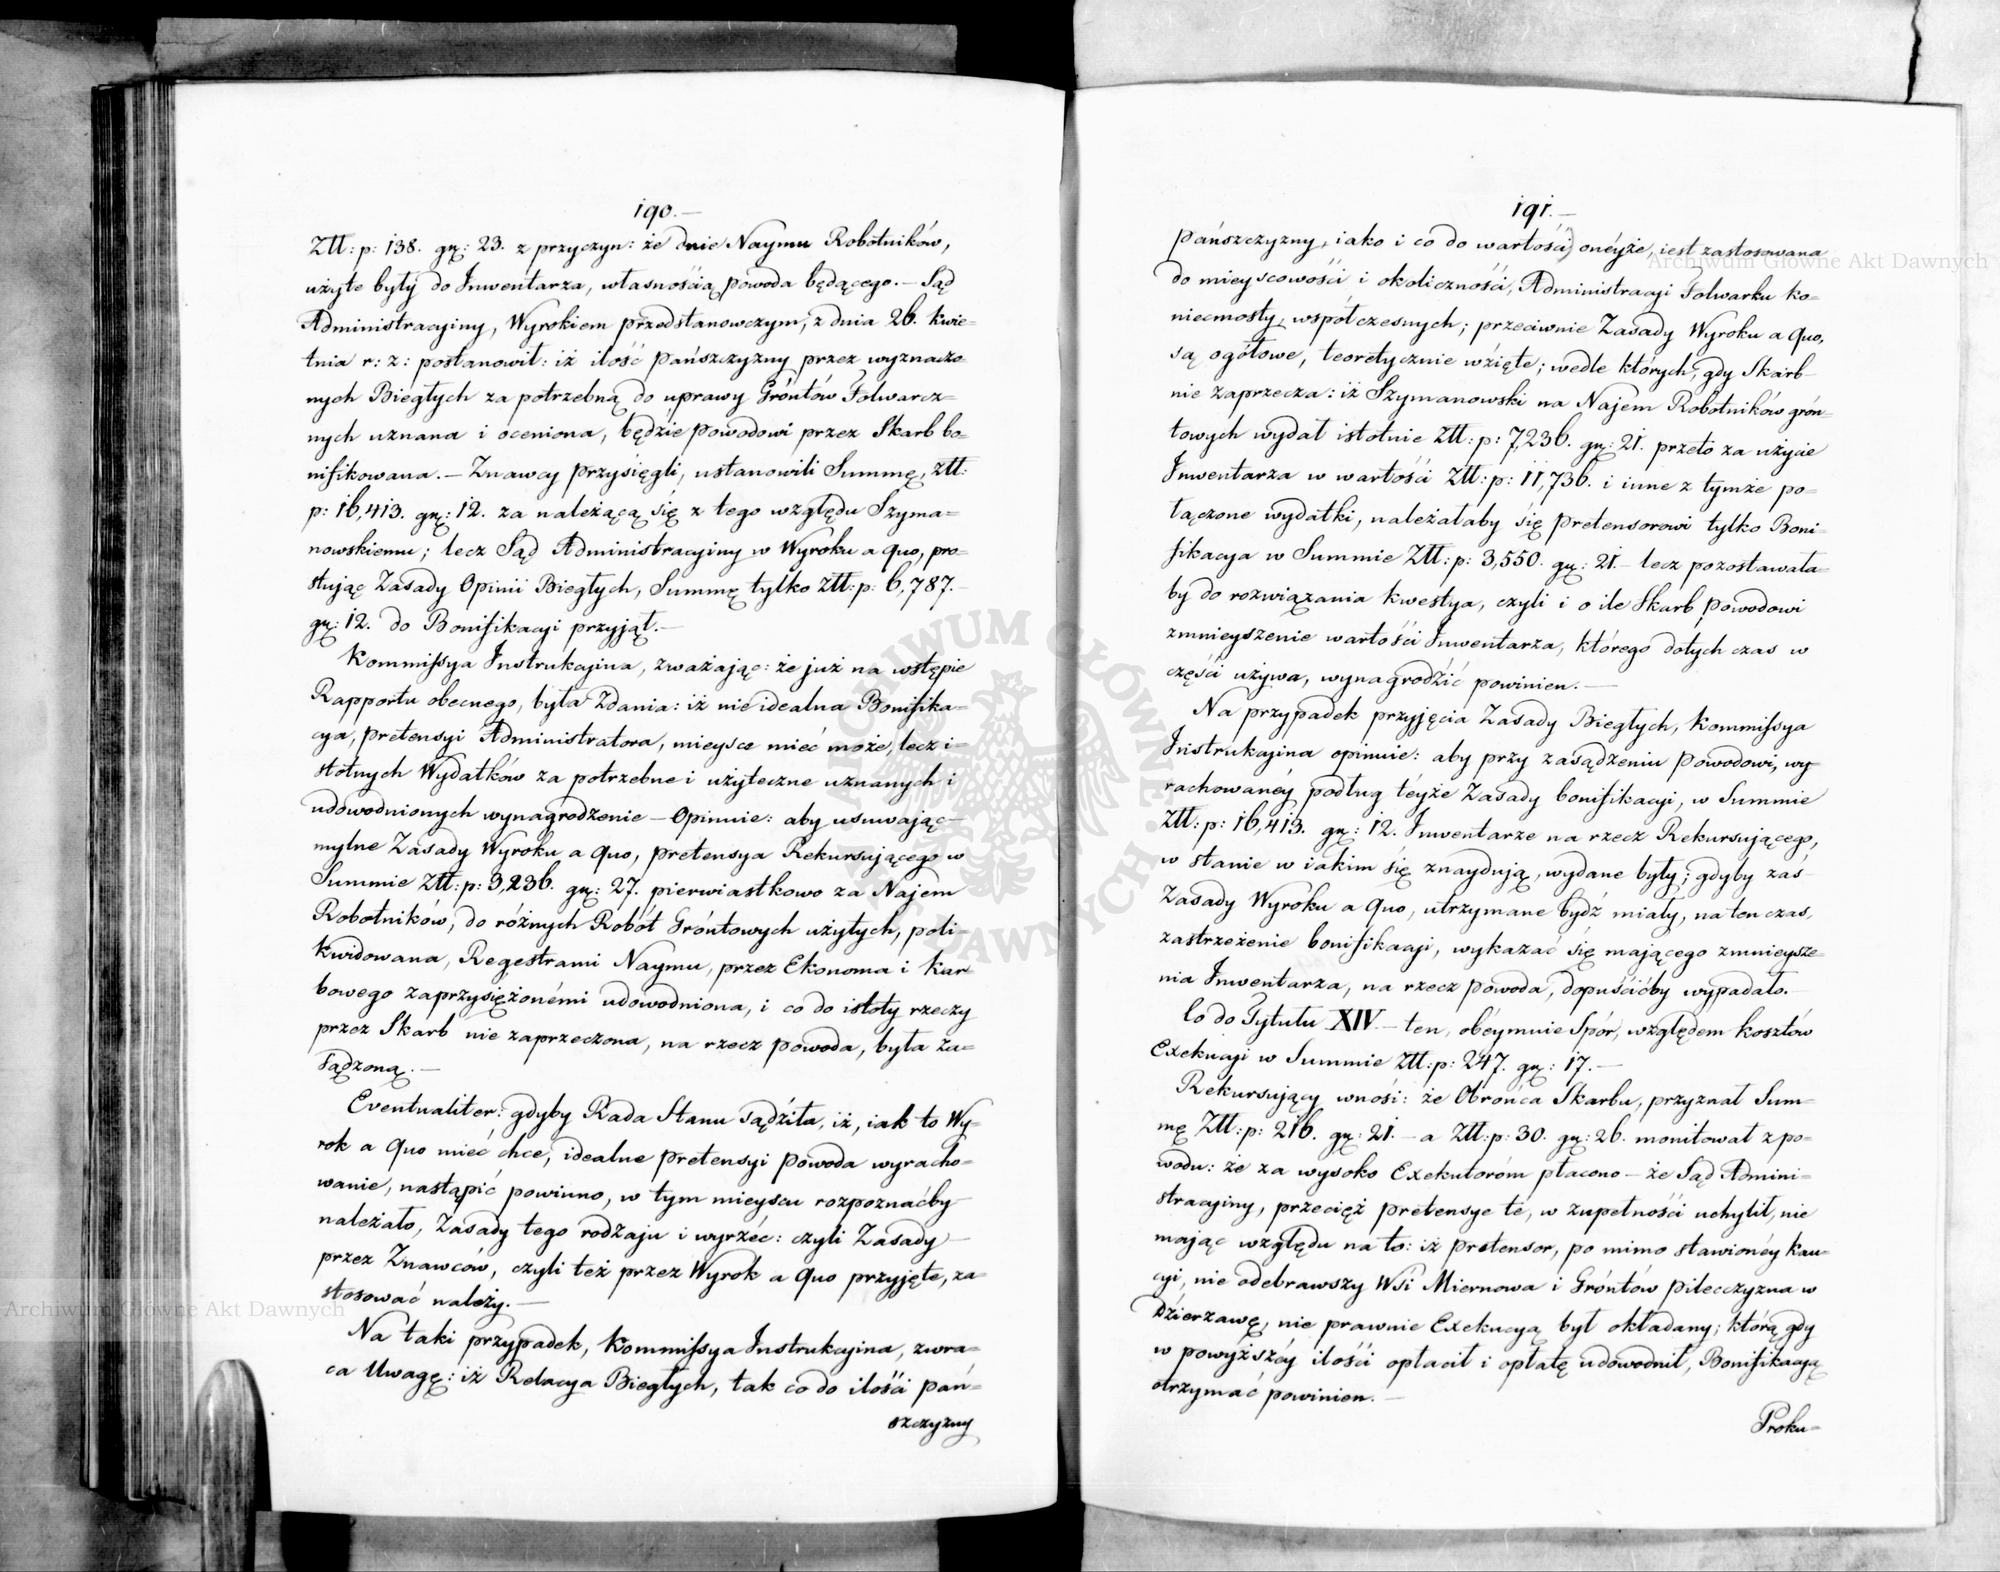 190.—
Złł: p: 138. gr: 23. z przyczyn: że dnie Naymu Robotników,
użyte były do Inwentarza, własnością powoda będącego. — Sąd
Administracyiny, Wyrokiem przedstanowczym, z dnia 26. Kwie=
tnia r: z: postanowił: iż ilość Pańszczyzny przez wyznaczo=
nych Biegłych za potrzebną do uprawy Gróntów Folwarcz=
nych uznana i oceniona, będzie Powodowi przez Skarb bo=
nifikowana. — Znawcy przysięgli, ustanowili Summę, złł:
p: 16,413. gr: 12. za należącą się z tego względu Szyma=
nowskiemu; lecz Sąd Administracyiny w Wyroku a quo, pro=
stując Zasady Opinii Biegłych, Summę tylko złł: p: 6,787.—
gr: 12. do Bonifikacyi przyjął. —
Kommissya Instrukcyina, zważając: że już na wstępie
Rapportu obecnego, była Zdania: iż nie idealna Bonifika=
cya, pretensyi Administratora, mieysce mieć może, lecz i=
stotnych Wydatków za potrzebne i użyteczne uznanych i
udowodnionych wynagrodzenie — Opiniie: aby usuwając—
mylne Zasady Wyroku a quo, pretensya Rekursującego w
Summie Złł: p: 3,236. gr: 27. pierwiastkowo za Najem
Robotników, do różnych Robót Gróntowych użytych, poli=
kwidowana, Regestrami Naymu, przez Ekonoma i Kar=
bowego zaprzysiężonémi udowodniona, i co do istoty rzeczy
przez Skarb nie zaprzeczona, na rzecz powoda, była za=
sądzoną. —
Eventualiter: gdyby Rada Stanu sądziła, iż, iak to Wy=
rok a quo mieć chce, idealne pretensyi Powoda wyracho=
wanie, nastąpić powinno, w tym mieyscu rozpoznaćby
należało, Zasady tego rodzaju i wyrzéc: czyli Zasady
przez Znawców, czyli też przez Wyrok a quo przyjęte, za=
stosować należy. —
Na taki przypadek, Kommissya Instrukcyina, zwra=
ca Uwagę: iż Relacya Biegłych, tak co do ilości pań=
szczyzny
191.—
Pańszczyzny, iako i co do wartości onéyże, iest zastosowana
do mieyscowości i okoliczności, Administracyi Folwarku ko=
niecmosty, współczesnych; przeciwnie Zasady Wyroku a quo,
są ogółowe, teoretycznie wzięte; wedle których, gdy Skarb
nie zaprzecza: iż Szymanowski na Najem Robotników grón=
towych wydał istotnie Złł: p: 7,236. gr: 21. przeto za użycie
Inwentarza w wartości Złł: p: 11,736. i inne z tymże po=
łączone wydatki, należałaby się Pretensorowi tylko Boni=
fikacya w Summie Złł: p: 3,550. gr: 21.— lecz pozostawała=
by do rozwiązania kwestya, czyli i o ile Skarb Powodowi
zmnieyszenie wartości Inwentarza, którego dotych czas w
części używa, wynagrodzić powinien. —
Na przypadek przyjęcia Zasady Biegłych, Kommissya
Instrukcyina opiniie: aby przy zasądzeniu Powodowi, wy=
rachowanéy podług téyże Zasady bonifikacyi, w Summie
Złł: p: 16,413. gr: 12. Inwentarze na rzecz Rekursującego,
w stanie w iakim się znaydują, wydane były; gdyby zaś
Zasady Wyroku a quo, utrzymane bydź miały, na ten czas,
zastrzeżenie bonifikacyi, wykazać się mającego zmnieysze=
nia Inwentarza, na rzecz Powoda, dopuścićby wypadało.—
Co do Tytułu XIV.— ten, obéymuie Spór, względem kosztów
Exekucyi w Summie Złł: p: 247. gr: 17.—
Rekursujący wnosi: że Obrońca Skarbu, przyznał Sum=
mę Złł: p: 216. gr: 21.— a Złł: p: 30. gr: 26. monitował z po=
wodu: że za wysoko Exekutoróm płacono — że Sąd Admini=
stracyiny, przecięż pretensye te, w zupełności uchylił, nie
mając względu na to: iż Pretensor, po mimo stawionéy Kau=
cyi, nie odebrawszy Wsi Miernowa i Gróntów Pilecczyzna w
Dzierzawę, nie prawnie Exekucyą był okładany; którą gdy
w powyższéy ilości opłacił i opłatę udowodnił, Bonifikacyą
otrzymać powinien. —
Proku=
Archiwum Główne Akt Dawnych
Archiwum Główne Akt Dawnych
ARCHIWUM GŁÓWNE AKT DAWNYCH